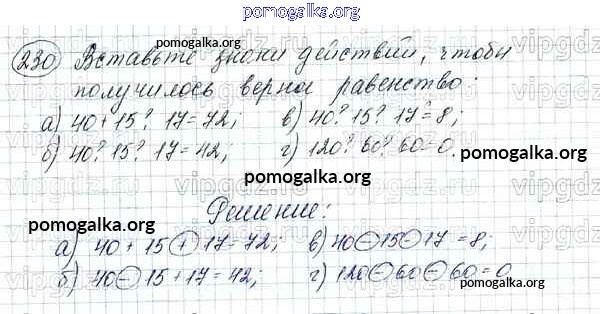 pomogalka.org
230 Вставьте знаки действий, чтобы
pomogalka.org
получилось верное равенство:
а) 40 + 15 ? 17 = 72; в) 40 ? 15 ? 17 = 8;
б) 40 ? 15 ? 17 = 42; г) 120 ? 60 ? 60 = 0.
pomogalka.org
pomogalka.org
Решение:
pomogalka.org
а) 40 + 15 + 17 = 72; в) 40 - 15 - 17 = 8;
б) 40 - 15 + 17 = 42; г) 120 - 60 - 60 = 0
pomogalka.org
pomogalka.org